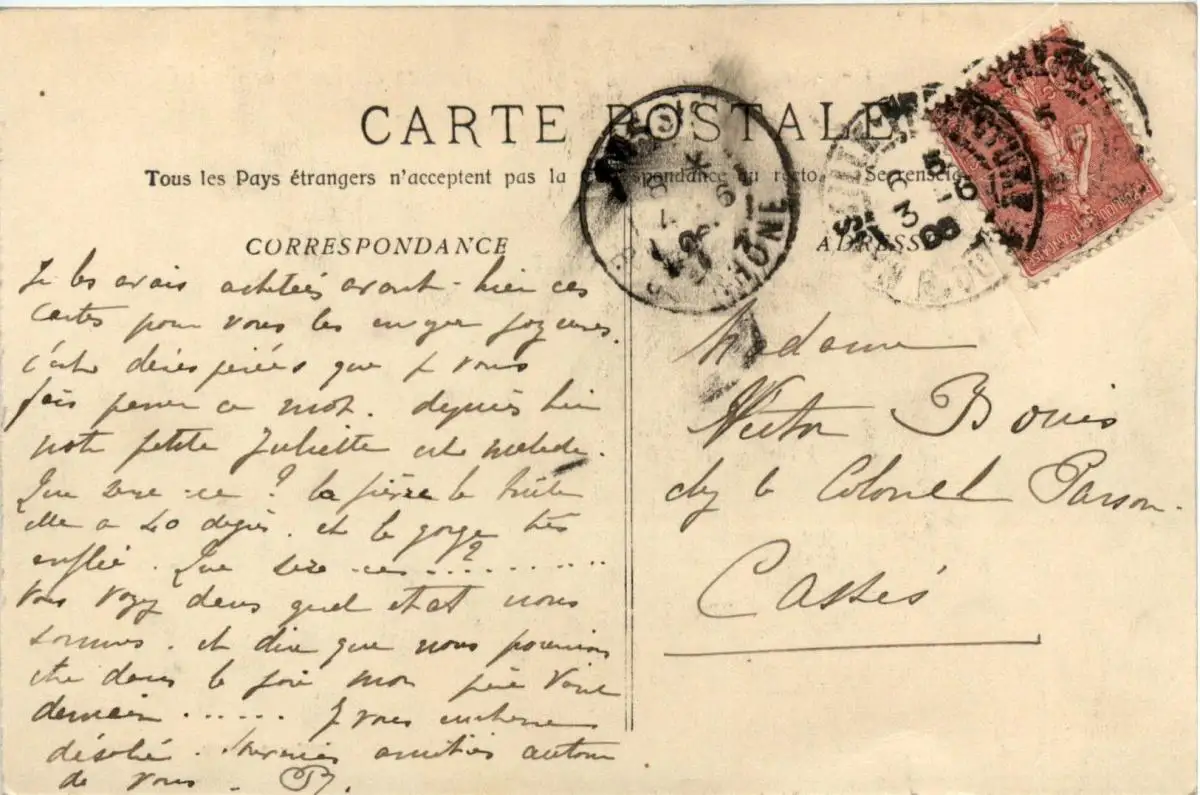 CARTE POSTALE
Tous les Pays étrangers n'acceptent pas la Correspondance au recto. Se renseigner
CORRESPONDANCE
ADRESSE
Je les avais achetées avant-hier ces
cartes pour vous les envoyer joyeuses.
c'est désespérées que je vous
fais parvenir ce mot. depuis hier
notre petite Juliette est malade.
Que sera-ce ? la fièvre la brûle
elle a 40 degrés. et la gorge très
enflée. Que sera-ce ? ..........
Vous voyez dans quel état nous
sommes. et dire que nous pourrions
être dans la joie mon père vient
demain ...... Je vous embrasse
désolée. amitiés autour
de vous. B.
Madame
Victor Bouis
chez le Colonel Parson.
Cassis